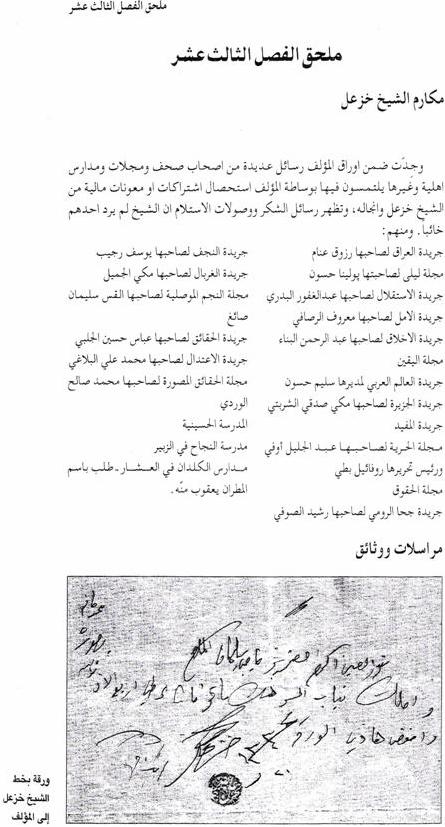 ملحق الفصل الثالث عشر
ملحق الفصل الثالث عشر
مكارم الشيخ خزعل
وجدّت ضمن اوراق المؤلف رسائل عديدة من اصحاب صحف ومجلات ومدارس
اهلية وغيرها يلتمسون فيها بوساطة المؤلف استحصال اشتراكات او معونات مالية من
الشيخ خزعل وانجاله، وتظهر رسائل الشكر ووصولات الاستلام ان الشيخ لم يرد احدهم
خائباً. ومنهم:
جريدة العراق لصاحبها رزوق غنام
مجلة ليلى لصاحبتها پولينا حسون
جريدة الاستقلال لصاحبها عبدالغفور البدري
جريدة الامل لصاحبها معروف الرصافي
جريدة الاخلاق لصاحبها عبد الرحمن البناء
مجلة اليقين
جريدة العالم العربي لمديرها سليم حسون
جريدة الجزيرة لصاحبها مكي صدقي الشربتي
جريدة المفيد
مجلة الحرية لصاحبها عبد الجليل أوفي
ورئيس تحريرها روفائيل بطي
مجلة الحقوق
جريدة جحا الرومي لصاحبها رشيد الصوفي
جريدة النجف لصاحبها يوسف رجيب
جريدة الغربال لصاحبها مكي الجميل
مجلة النجم الموصلية لصاحبها القس سليمان
صائغ
جريدة الحقائق لصاحبها عباس حسين الجلبي
جريدة الاعتدال لصاحبها محمد علي البلاغي
مجلة الحقائق المصورة لصاحبها محمد صالح
الوردي
المدرسة الحسينية
مدرسة النجاح في الزبير
مدارس الكلدان في العشار - طلب باسم
المطران يعقوب منّه.
مراسلات ووثائق
ورقة بخط
الشيخ خزعل
إلى المؤلف